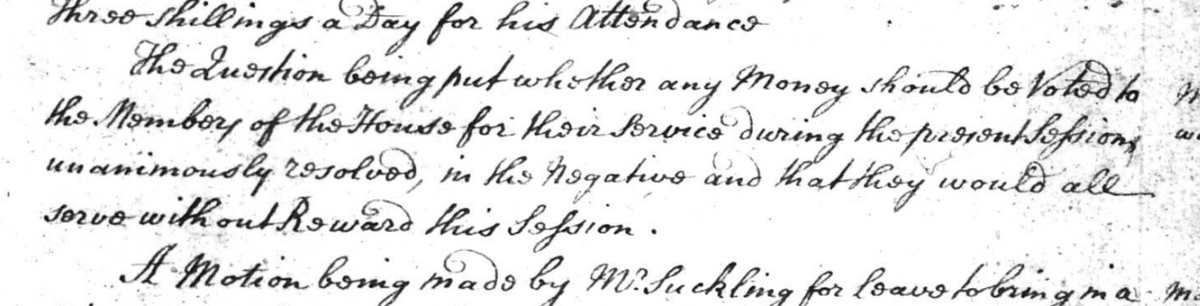 three shillings a Day for his Attendance
The Question being put whether any Money should be Voted to
the Members of the House for their Service during the present Session,
unanimously resolved, in the Negative and that they would all
serve without Reward this Session.
A Motion being made by Mr. Suckling for leave to bring in a